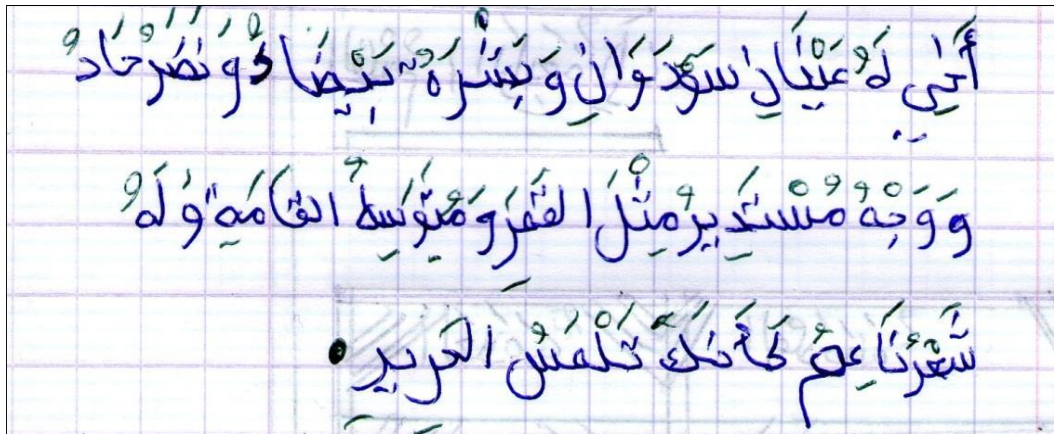 أَخِي لَهُ عَيْنَانِ سَوْدَوَانِ وَبَشْرَةٌ بَيْضَاءُ وَنَضَرُ حَادُ
وَوَجْهُ مُسْتَدِيرُ مِثْلَ القَمَرِ وَمُتَوَسِّطُ القَامَةِ وَلَهُ
شَعْرُ نَاعِمُ كَأَنَّكَ تَلْمَسُ الحَرِيرِ.